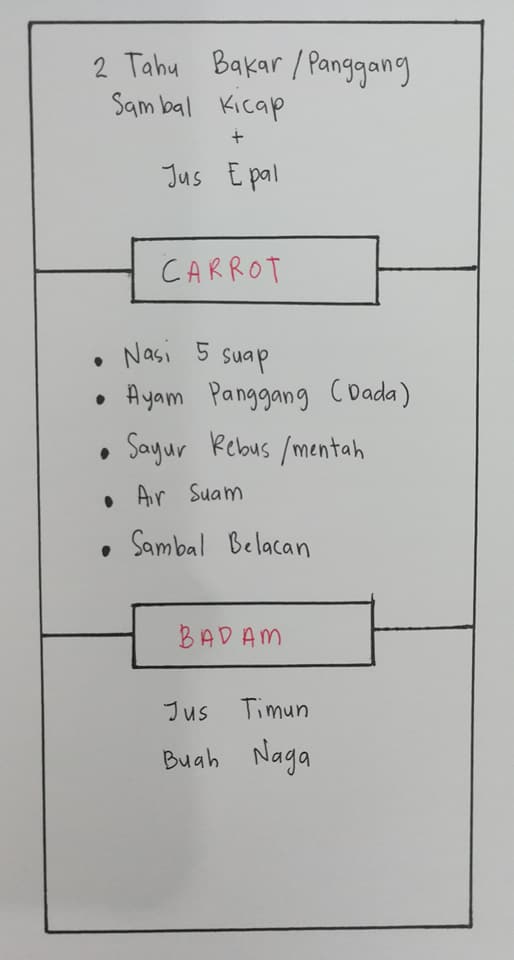 2 Tahu Bakar/Panggang
Sambal Kicap
+
Jus Epal
CARROT
• Nasi 5 suap
• Ayam Panggang (Dada)
• Sayur Rebus/mentah
• Air Suam
• Sambal Belacan
BADAM
Jus Timun
Buah Naga